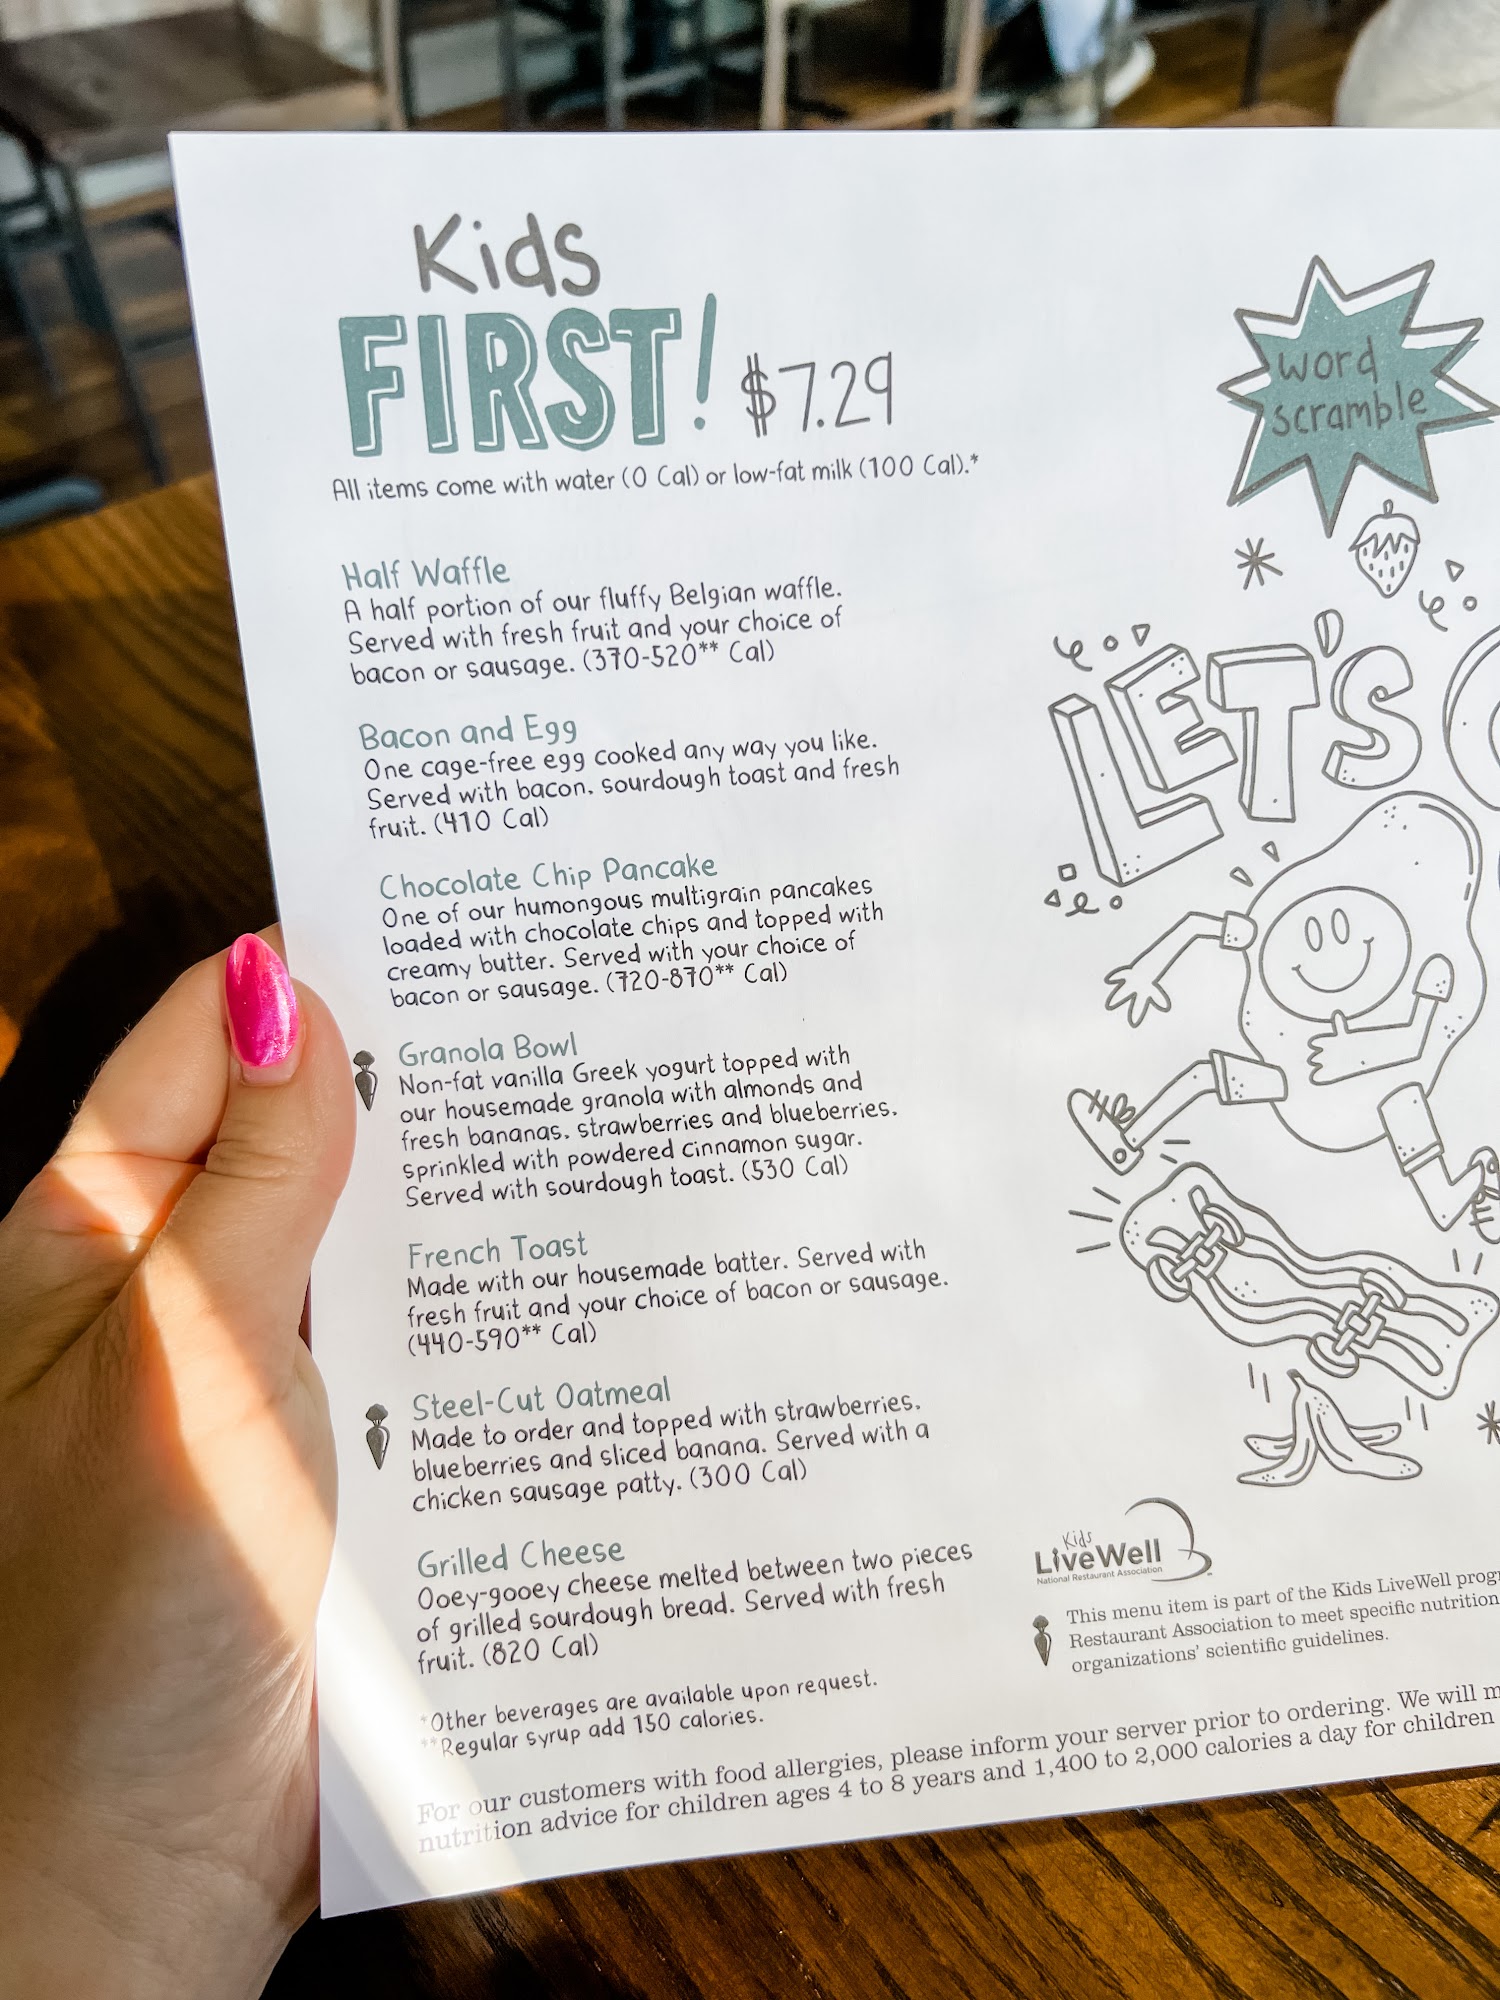 Kids
FIRST! $7.29
All items come with water (0 Cal) or low-fat milk (100 Cal).*
Half Waffle
A half portion of our fluffy Belgian waffle.
Served with fresh fruit and your choice of
bacon or sausage. (370-520** Cal)
Bacon and Egg
One cage-free egg cooked any way you like.
Served with bacon, sourdough toast and fresh
fruit. (410 Cal)
Chocolate Chip Pancake
One of our humongous multigrain pancakes
loaded with chocolate chips and topped with
creamy butter. Served with your choice of
bacon or sausage. (720-870** Cal)
Granola Bowl
Non-fat vanilla Greek yogurt topped with
our housemade granola with almonds and
fresh bananas, strawberries and blueberries,
sprinkled with powdered cinnamon sugar.
Served with sourdough toast. (530 Cal)
French Toast
Made with our housemade batter. Served with
fresh fruit and your choice of bacon or sausage.
(440-590** Cal)
Steel-Cut Oatmeal
Made to order and topped with strawberries,
blueberries and sliced banana. Served with a
chicken sausage patty. (300 Cal)
Grilled Cheese
Ooey-gooey cheese melted between two pieces
of grilled sourdough bread. Served with fresh
fruit. (820 Cal)
*Other beverages are available upon request.
**Regular syrup add 150 calories.
word
scramble
LET'S
Kids
LiveWell
National Restaurant Association
This menu item is part of the Kids LiveWell
Restaurant Association to meet specific nutrition
organizations' scientific guidelines.
For our customers with food allergies, please inform your server prior to ordering. We will
nutrition advice for children ages 4 to 8 years and 1,400 to 2,000 calories a day for children